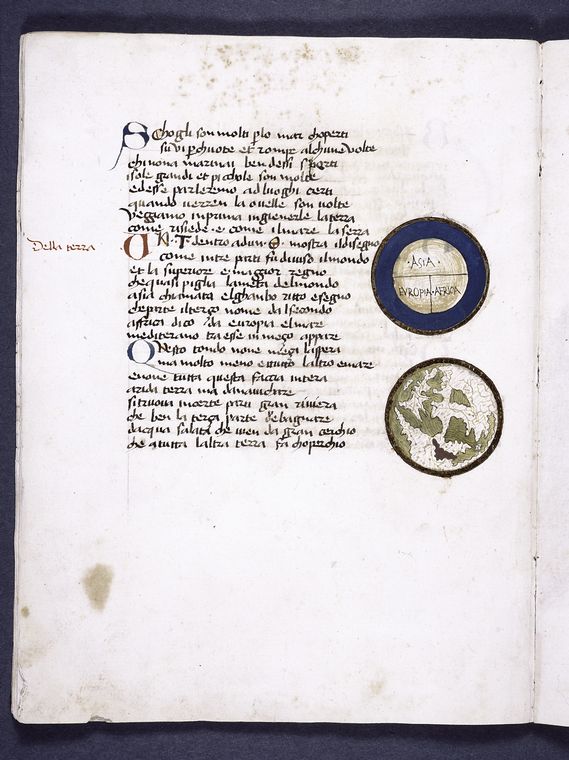 Schogli son molti plo mar choperti
su vi pchuote et rompe alchune volte
chi nona marinaj ben dessi sperti
isole grandi et pichole son molte
edesse parleremo ad luoghi certi
quando verren la ouelle son volte
Veggiamo inprima ingienerle laterra
come risiede e come ilmare laserra
Della terra
UN T dentro adun O mostra ildisegno
come intre parti fu diuiso ilmondo
et la superiore e maggior regno
che quasi piglia lameta delmondo
asia chiamata elghanbo ritto e segno
cheparte ilterço nome dalsecondo
affrica dico da europia elmare
mediterano tra esse in meço appare
ASIA
EVROPIA AFRICA
Questo tondo none meça laspera
ma molto meno et tutto laltro e mare
enone tutta questa faccia intera
arida terra ma dahauitare
si truoua incerte parti gran riuiera
che ben la terça parte de bagnare
dacqua salata che uien da gran cerchio
che atutta laltra terra fa choperchio